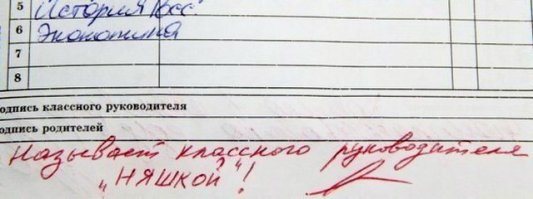 5 История Росс.
6 Экономика
7
8
одпись классного руководителя
одпись родителей
Называет классного руководителя
"НЯШКОЙ"!